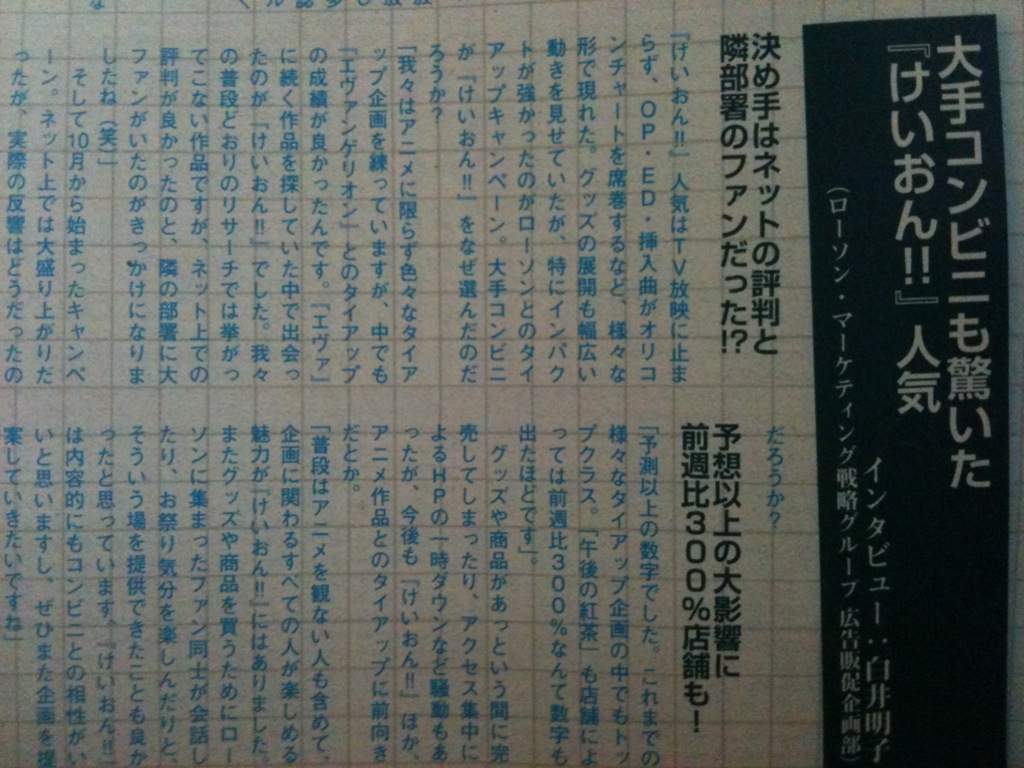 大手コンビニも驚いた
『けいおん!!』人気
インタビュー:白井明子
(ローソン・マーケティング戦略グループ 広告販促企画部)
決め手はネットの評判と
隣部署のファンだった!?
『けいおん!!』人気はTV放映に止ま
らず、OP・ED・挿入曲がオリコ
ンチャートを席巻するなど、様々な
形で現れた。グッズの展開も幅広い
動きを見せていたが、特にインパク
トが強かったのがローソンとのタイ
アップキャンペーン。大手コンビニ
が『けいおん!!』をなぜ選んだのだ
ろうか?
「我々はアニメに限らず色々なタイア
ップ企画を練っていますが、中でも
『エヴァンゲリオン』とのタイアップ
の成績が良かったんです。『エヴァ』
に続く作品を探していた中で出会っ
たのが『けいおん!!』でした。我々
の普段どおりのリサーチでは挙がっ
てこない作品ですが、ネット上での
評判が良かったのと、隣の部署に大
ファンがいたのがきっかけになりま
したね(笑)」
そして10月から始まったキャンペ
ーン。ネット上では大盛り上がりだ
ったが、実際の反響はどうだったの
だろうか?
予想以上の大影響に
前週比300%店舗も!
「予測以上の数字でした。これまでの
様々なタイアップ企画の中でもトッ
プクラス。『午後の紅茶』も店舗によ
っては前週比300%なんて数字も
出たほどです」。
グッズや商品があっという間に完
売してしまったり、アクセス集中に
よるHPの一時ダウンなど騒動もあ
ったが、今後も『けいおん!!』ほか、
アニメ作品とのタイアップに前向き
だとか。
「普段はアニメを観ない人も含めて、
企画に関わるすべての人が楽しめる
魅力が『けいおん!!』にはありました。
またグッズや商品を買うためにロー
ソンに集まったファン同士が会話し
たり、お祭り気分を楽しんだりと、
そういう場を提供できたことも良か
ったと思っています。『けいおん!!』
は内容的にもコンビニとの相性がい
いと思いますし、ぜひまた企画を提
案していきたいですね」